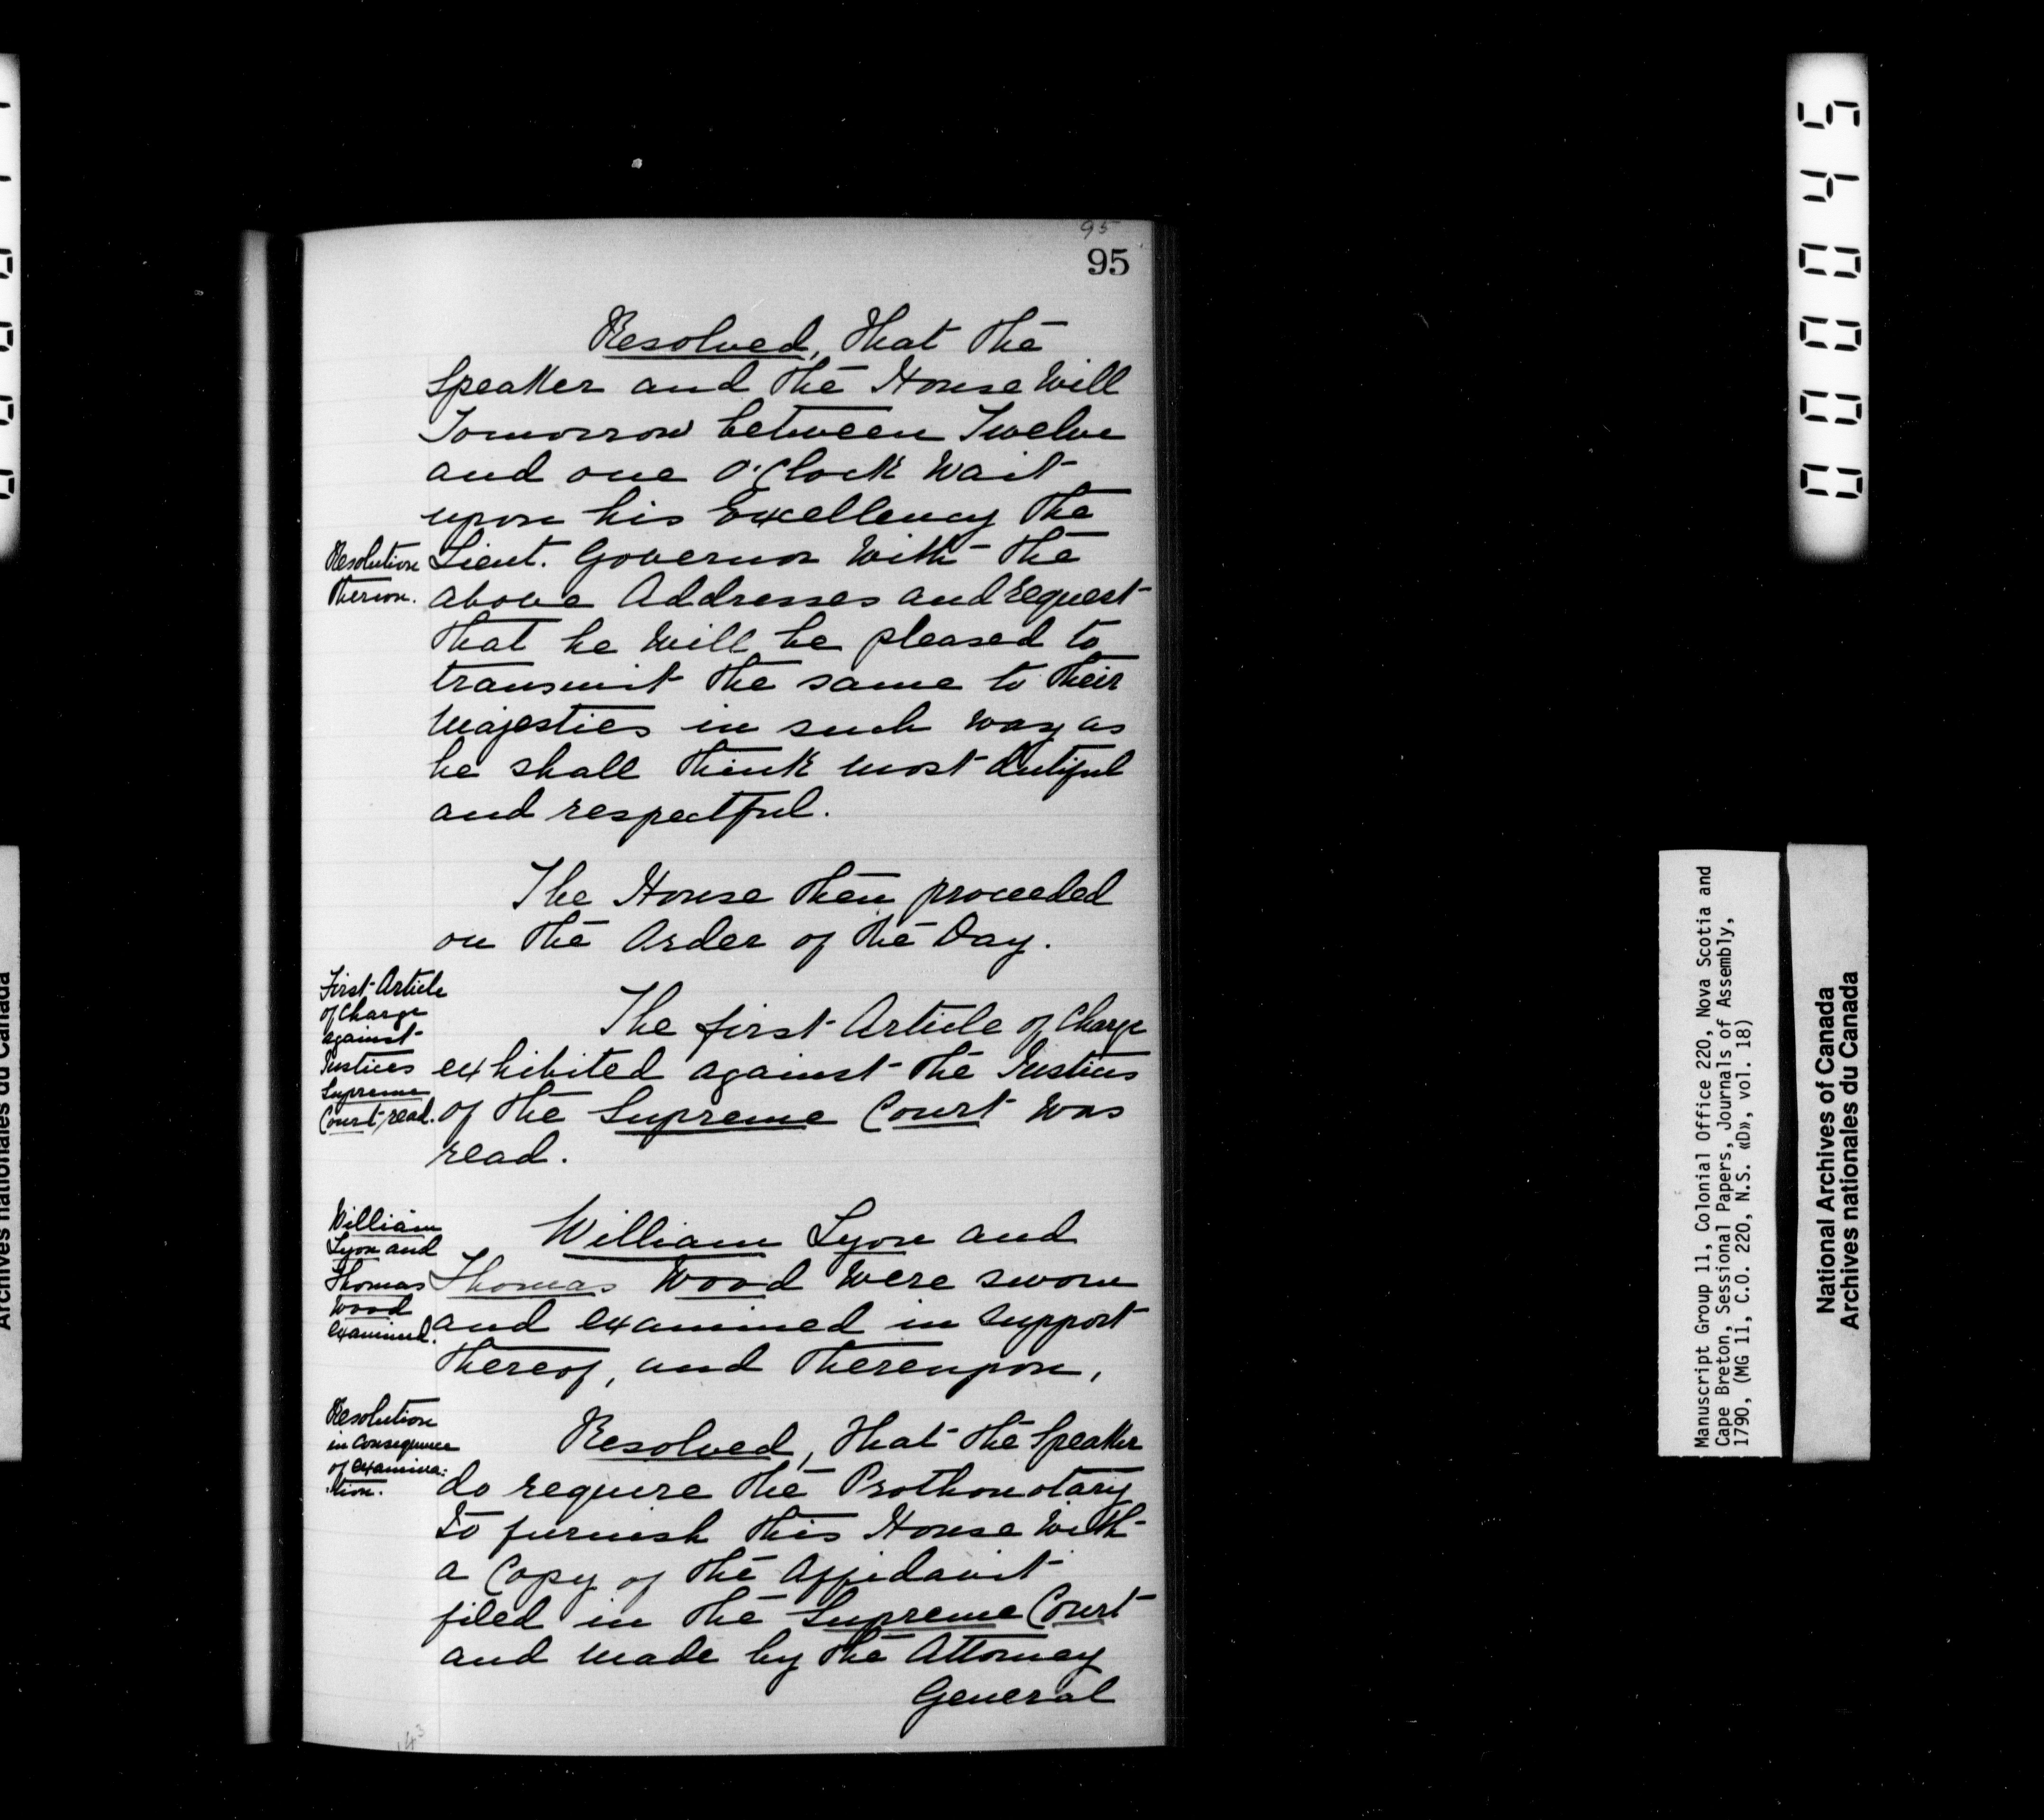 95
95
Resolved, that the
Speaker and the House will
Tomorrow between Twelve
and one O'Clock wait
upon his Excellency the
Resolution
thereon.
Lieut. Governor with the
above Addresses and request
that he will be pleased to
transmit the same to their
Majesties in such way as
he shall think most dutiful
and respectful.
The House then proceeded
on the Order of the Day.
First Article
of Charge
against
Justices
Supreme
Court read.
The first Article of Charge
exhibited against the Justices
of the Supreme Court was
read.
William
Lyon and
Thomas
Wood
examined.
William Lyon and
Thomas Wood were sworn
and examined in support
thereof, and thereupon,
Resolution
in consequence
of examina:
:tion.
Resolved, that the Speaker
do require the Prothonotary
to furnish this House with
a Copy of the Affidavit
filed in the Supreme Court
and made by the Attorney
General
143
000045
Manuscript Group 11, Colonial Office 220, Nova Scotia and
Cape Breton, Sessional Papers, Journals of Assembly,
1790, (MG 11, C.O. 220, N.S. «D», vol. 18)
National Archives of Canada
Archives nationales du Canada
Archives nationales du Canada